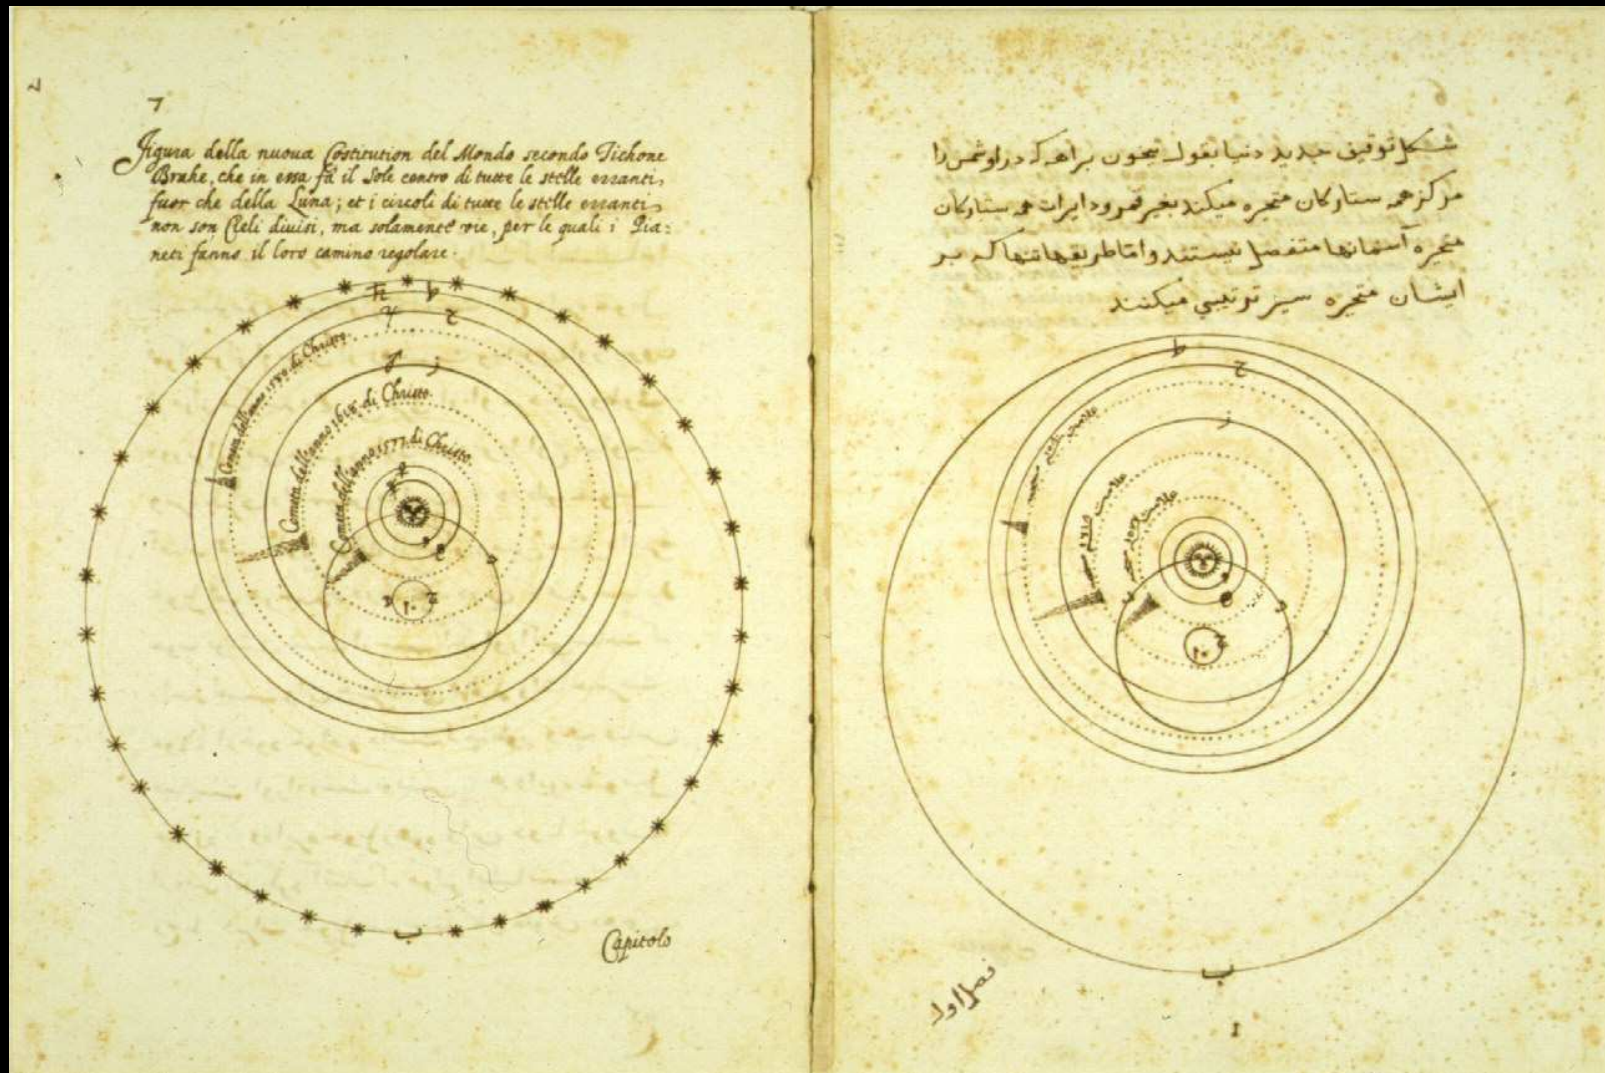 7
Figura della nuoua Costitution del Mondo secondo Tichone
Brahe, che in essa fà il Sole centro di tutte le stelle erranti,
fuor che della Luna; et i circoli di tutte le stelle erranti
non son Cieli diuisi, ma solamente vie, per le quali i Pia:
neti fanno il loro camino regolare.
♄ ط
♃ ح
♂ ز
Cometa dell'anno 1580 di Christo
Cometa dell'anno 1618 di Christo
Cometa dell'anno 1577 di Christo
ب
Capitolo
شكل توفيق جديد دنيا بقول تيخون براهه كه در او شمس را
مركز همه ستاركان متحيره ميكند بغير قمر ودايرات همه ستاركان
متحيره آسمانها متفصل نيستند واما طريقها تنها كه بر
ايشان متحيره سير ترتيبي ميكنند
ط
ح
ز
ب
فصل اول
1